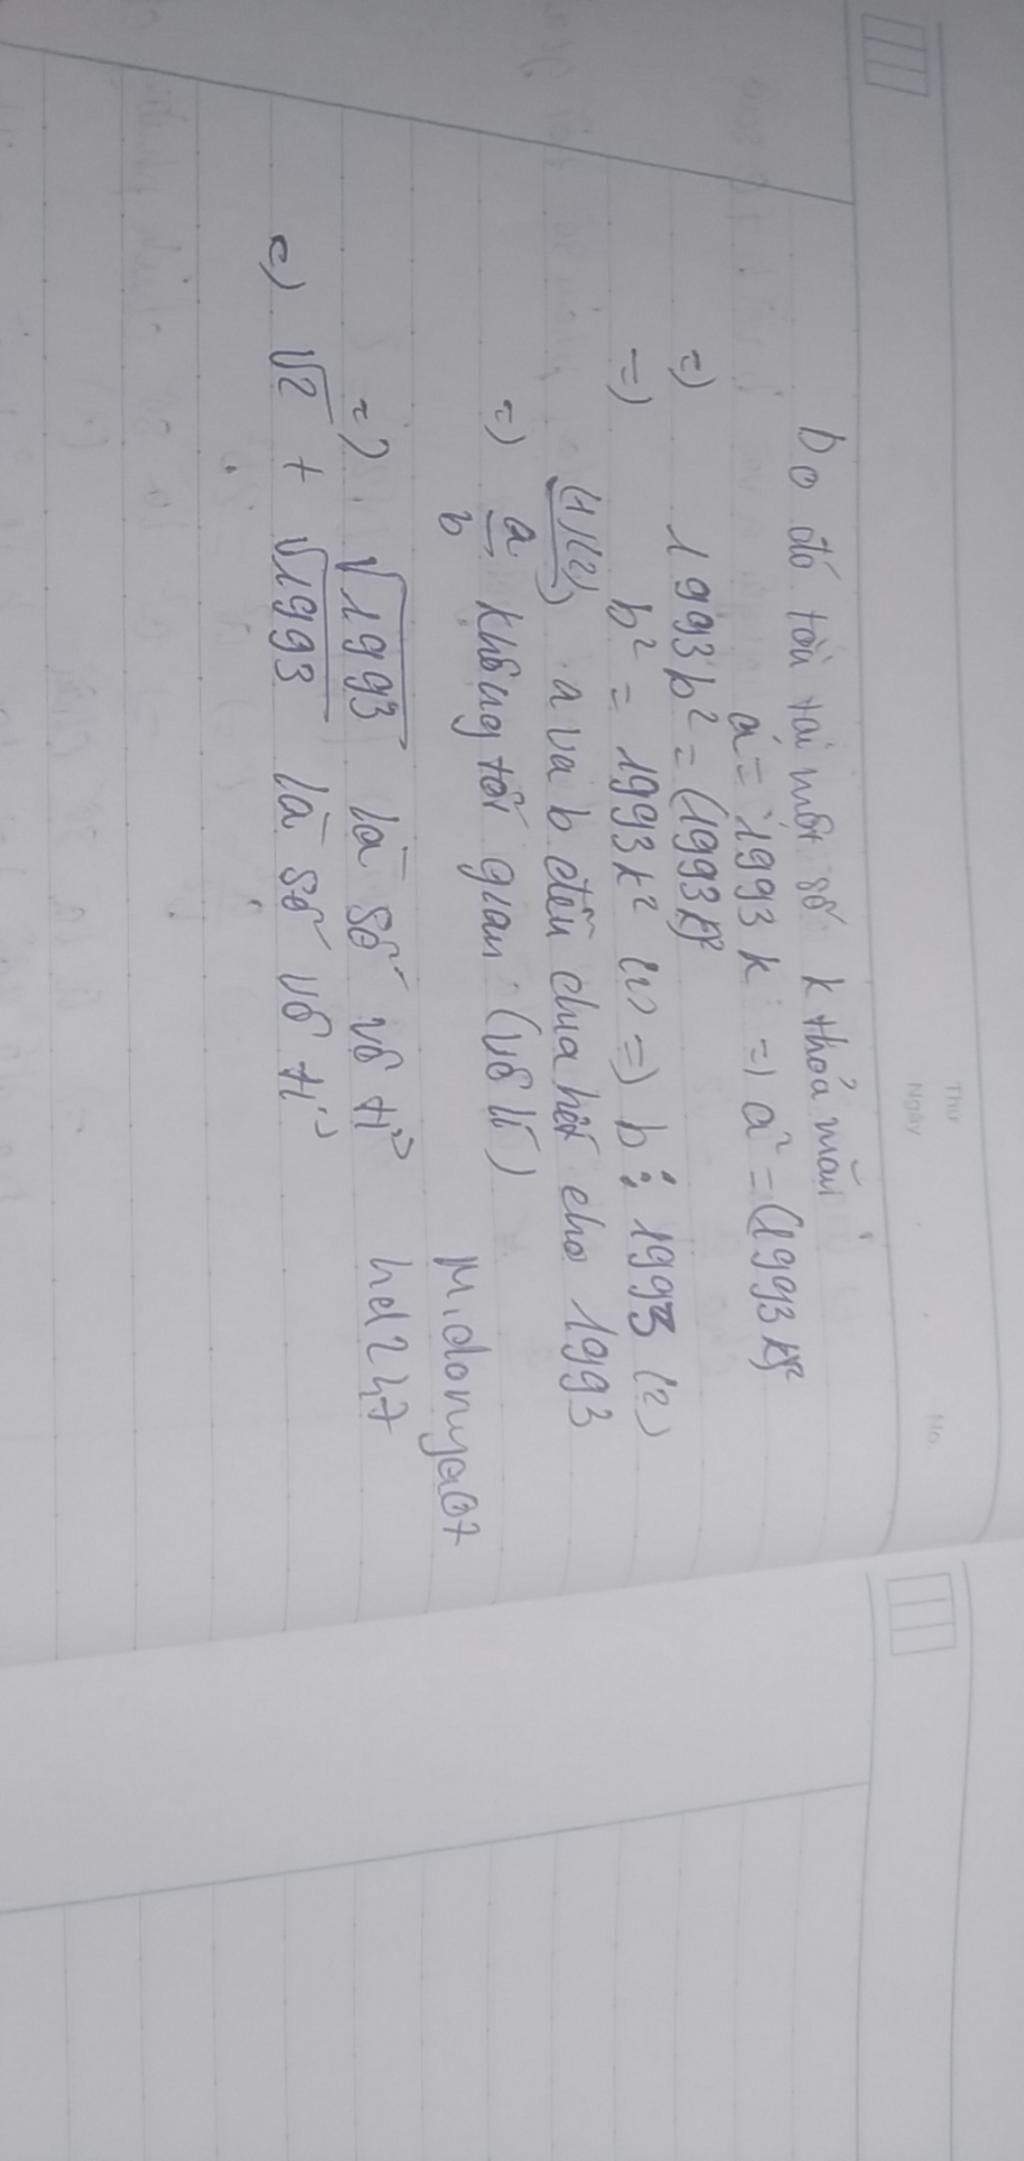 Thứ
Ngày
No.
Do đó tồn tại một số k thoả mãn
a = 1993k => a² = (1993k)²
=> 1993b² = (1993k)²
=> b² = 1993k² (1) => b ⋮ 1993 (2)
(1)(2) a và b đều chia hết cho 1993
=> a/b không tối giản (vô lí)
=> √1993 là số vô tỉ
c) √2 + √1993 là số vô tỉ
Midonya07
hd247